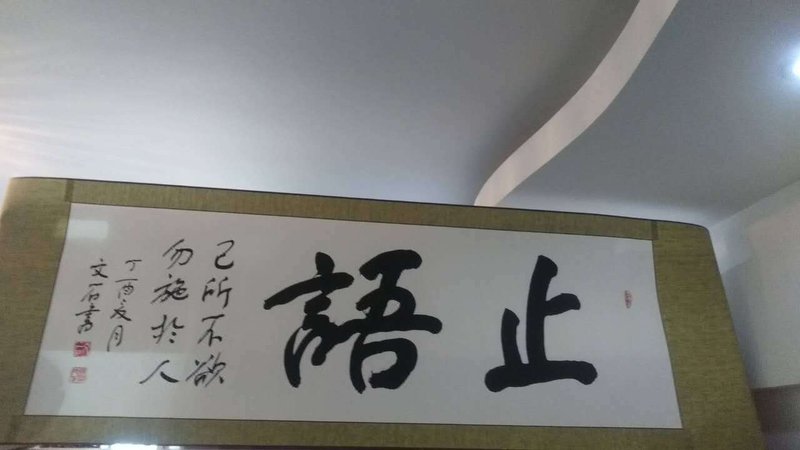 止語
己所不欲
勿施於人
丁酉夏月
文石書